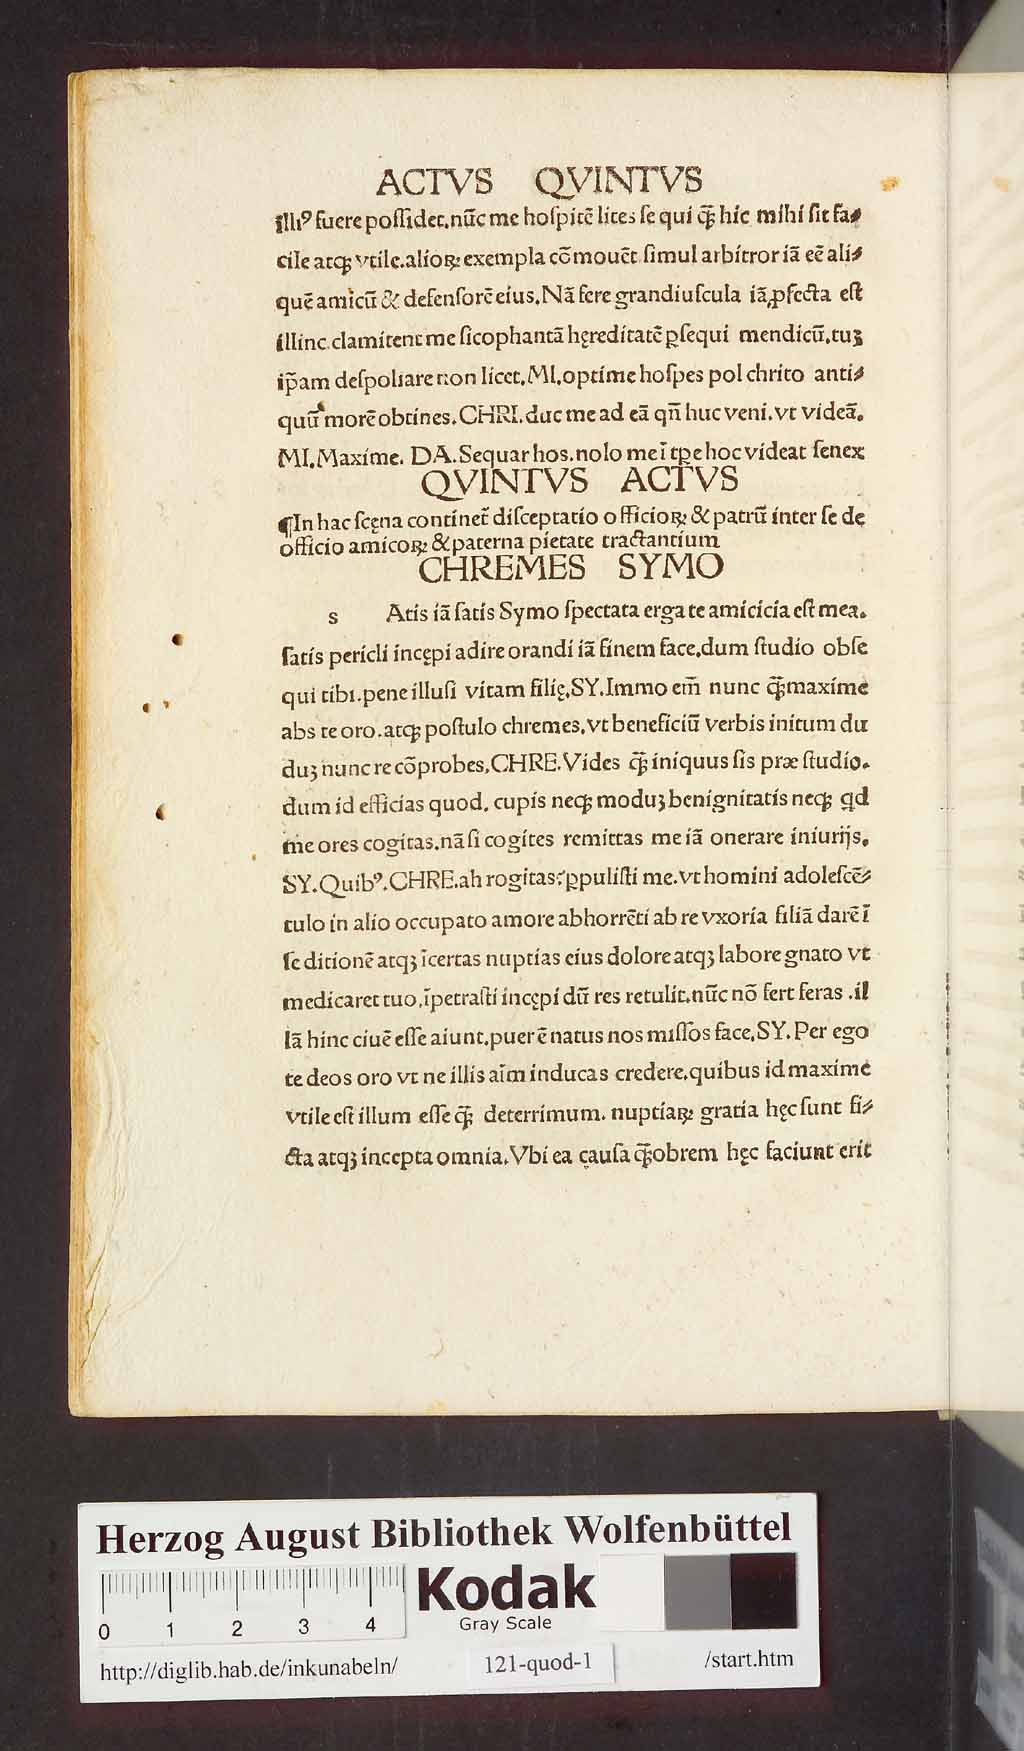 ACTVS QVINTVS
illiꝰ fuere poſſidet.nūc me hoſpitē lites ſe qui ꝙ̄ hic mihi ſit fa⸗
cile atqꝫ vtile.alioꝝ exempla cōmouēt ſimul arbitror iā eē ali⸗
quē amicū & defenſorē eius.Nā fere grandiuſcula iā ꝓfecta eſt
illinc clamitent me ſicophantā hęreditatē ꝑſequi mendicū.tuꝫ
ip̄am deſpoliare non licet.MI.optime hoſpes pol chrito anti⸗
quū morē obtines.CHRI.duc me ad eā qn̄ huc veni.vt videā.
MI.Maxime. DA.Sequar hos.nolo me ī tꝑe hoc videat ſenex
QVINTVS ACTVS
¶In hac ſcęna continet̄ diſceptatio officioꝝ & patrū inter ſe dę
officio amicoꝝ & paterna pietate tractantium
CHREMES SYMO
s Atis iā ſatis Symo ſpectata erga te amicicia eſt mea.
ſatis pericli incępi adire orandi iā finem face.dum ſtudio obſe
qui tibi.pene illuſi vitam filię.SY.Immo em̄ nunc ꝙ̄ maxime
abs te oro.atqꝫ poſtulo chremes.vt beneficiū verbis initum du
duꝫ nunc re cōprobes.CHRE.Vides ꝙ̄ iniquus ſis præ ſtudio.
dum id efficias quod. cupis neqꝫ moduꝫ benignitatis neqꝫ qd
me ores cogitas.nā ſi cogites remittas me iā onerare iniurijs.
SY.Quibꝰ.CHRE.ah rogitas?ꝓpuliſti me.vt homini adoleſcē⸗
tulo in alio occupato amore abhorrēti ab re vxoria filiā darē ī
ſe ditionē atqꝫ īcertas nuptias eius dolore atqꝫ labore gnato vt
medicaret tuo.īpetraſti incępi dū res retulit.nūc nō fert feras .il
lā hinc ciuē eſſe aiunt.puer ē natus nos miſſos face.SY.Per ego
te deos oro vt ne illis aīm inducas credere.quibus id maxime
vtile eſt illum eſſe ꝙ̄ deterrimum. nuptiaꝝ gratia hęc ſunt fi⸗
cta atqꝫ incepta omnia.Vbi ea cauſa ꝙ̄obrem hęc faciunt erit
Herzog August Bibliothek Wolfenbüttel
0 1 2 3 4
Kodak
Gray Scale
http://diglib.hab.de/inkunabeln/ 121-quod-1 /start.htm